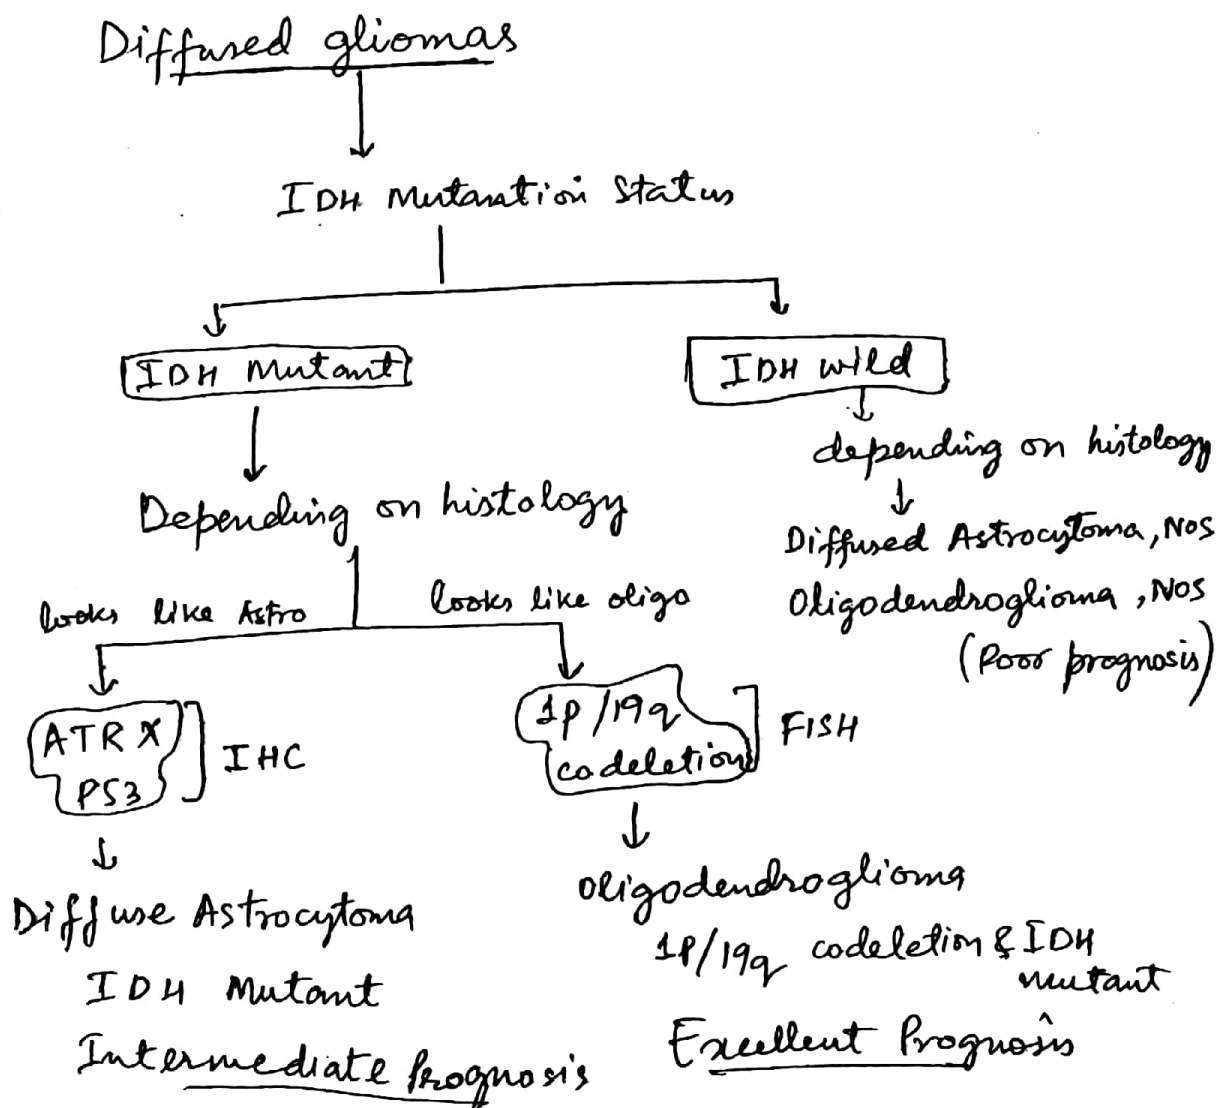 Diffused gliomas
IDH Mutantion Status
IDH Mutant
IDH wild
depending on histology
Diffused Astrocytoma, NOS
Oligodendroglioma, NOS
(Poor prognosis)
Depending on histology
looks like Astro
looks like oligo
ATRX
P53
IHC
1p/19q
codeletion
FISH
Diffuse Astrocytoma
IDH Mutant
Intermediate Prognosis
Oligodendroglioma
1P/19q codeletion & IDH
mutant
Excellent Prognosis